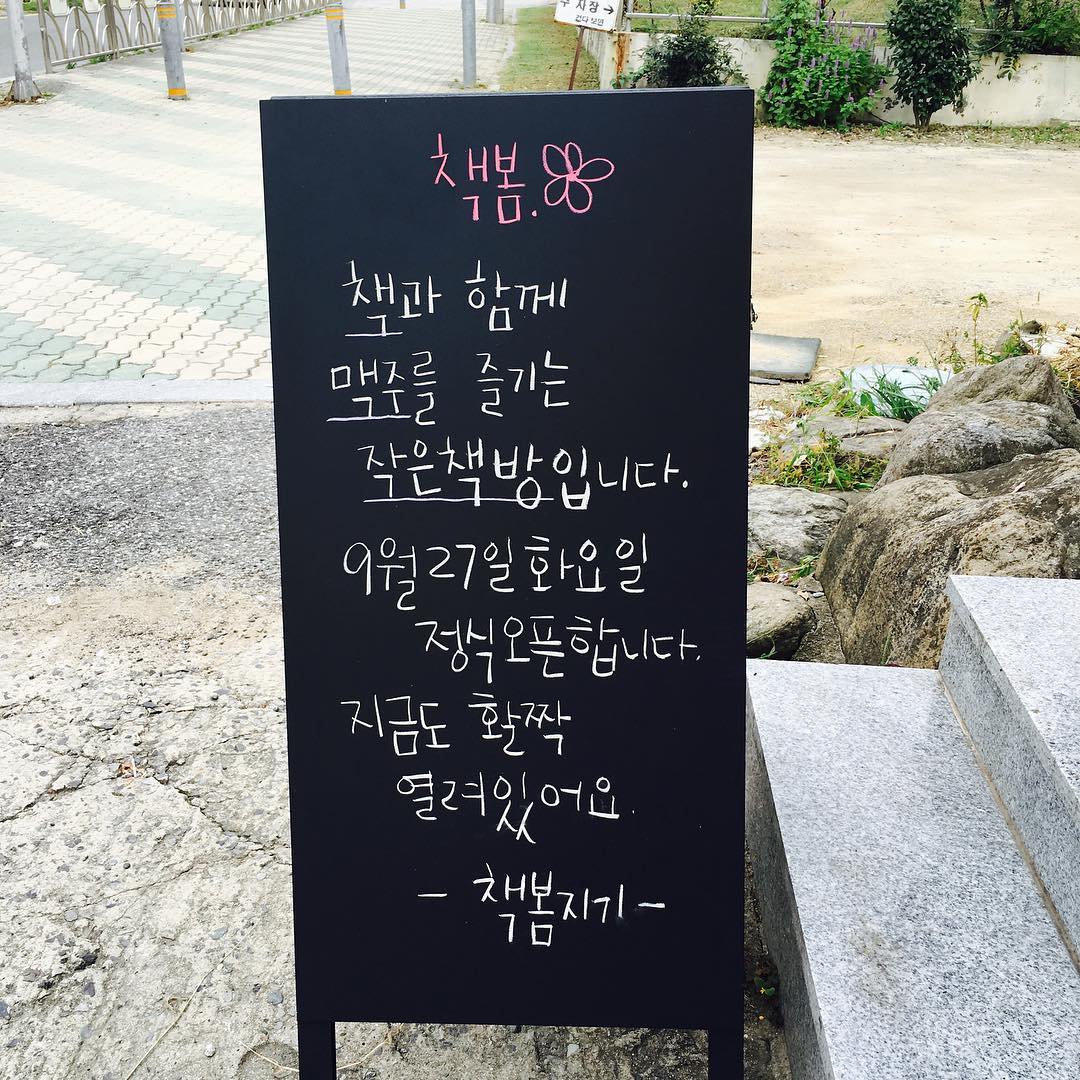 주 차장 →
걷다 보면
책봄.
책과 함께
맥주를 즐기는
작은책방입니다.
9월27일화요일
정식오픈합니다.
지금도 활짝
열려있어요.
- 책봄지기 -